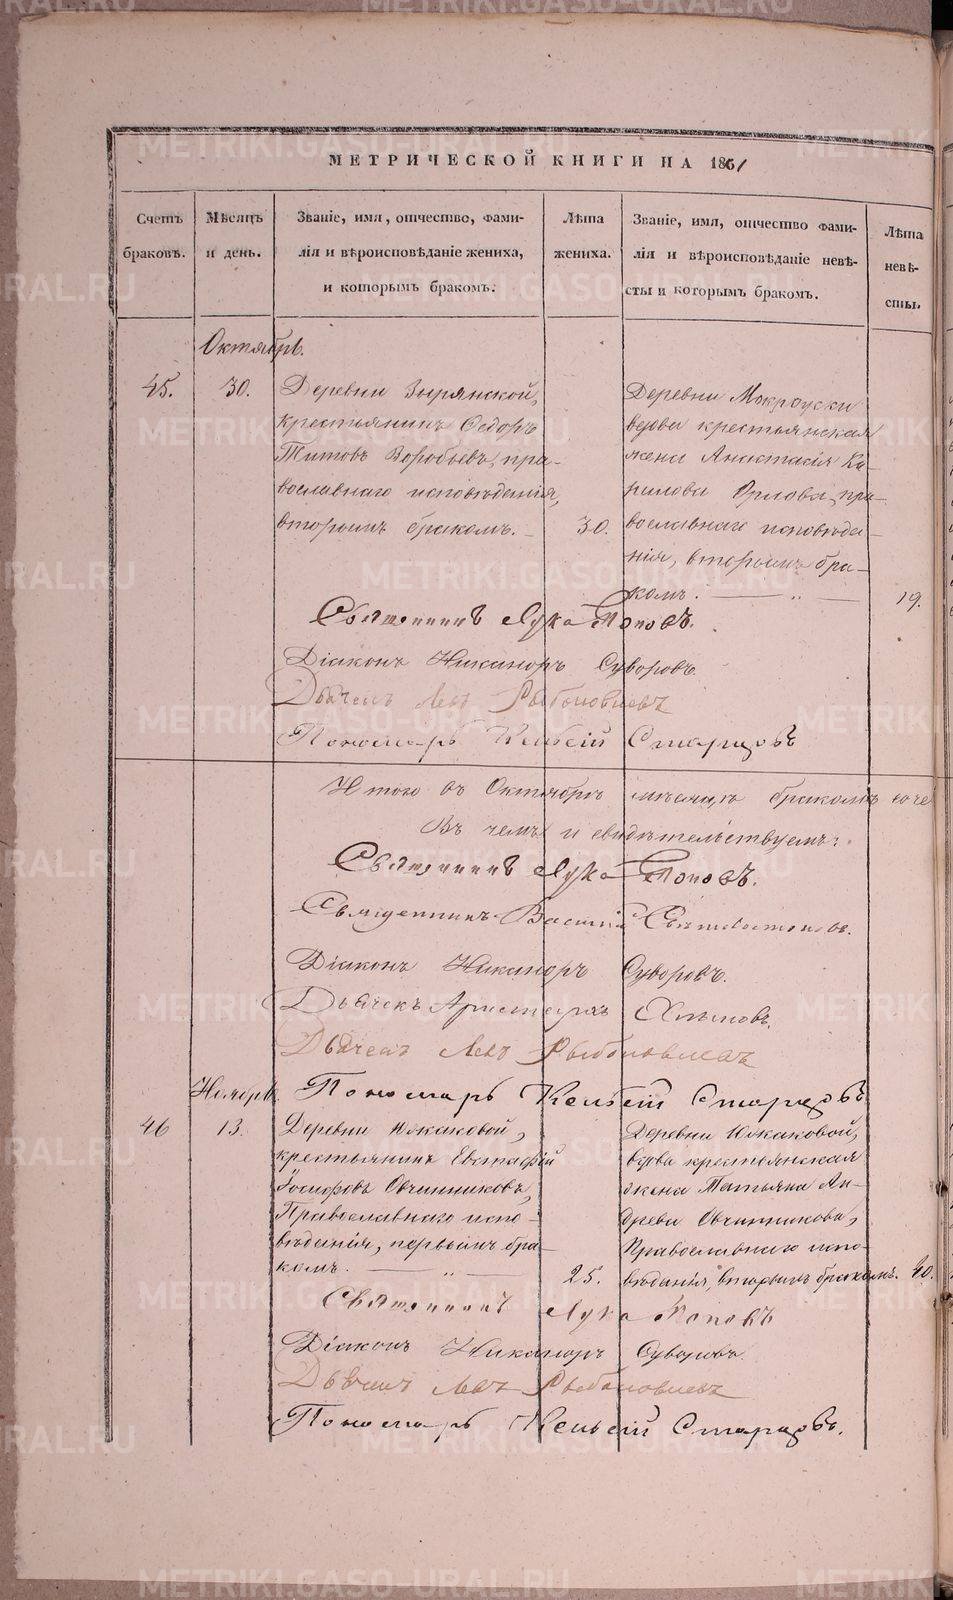 МЕТРИЧЕСКОЙ КНИГИ НА 1861
Счетъ браковъ.
Мѣсяцъ и день.
Званіе, имя, отчество, фами-
лія и вѣроисповѣданіе жениха,
и которымъ бракомъ.
Лѣта жениха.
Званіе, имя, отчество фами-
лія и вѣроисповѣданіе невѣ-
сты и которымъ бракомъ.
Лѣта невѣ-
сты.
Октябрь.
45.
30.
Деревни Зырянской,
крестьянинъ Ѳедоръ
Титовъ Воробьевъ, пра-
вославнаго исповѣданія,
вторымъ бракомъ.
30.
Деревни
вдова крестьянская
жена Анастасія Ки-
рилова Орлова, пра-
вославнаго исповѣда-
нія, вторымъ бра-
комъ. — „ —
19.
Священникъ Лука Поповъ.
Діаконъ Никаноръ Суворовъ.
Дьячекъ Левъ
Пономарь Старцовъ
Итого въ Октябрѣ мѣсяцѣ бракомъ
Въ чемъ и свидѣтельствуемъ:
Священникъ Лука Поповъ.
Священникъ Василій
Діаконъ Никаноръ Суворовъ.
Дьячекъ Аристархъ
Дьячекъ Левъ
Ноябрь.
Пономарь Старцовъ
46
13.
Деревни Южаковой,
крестьянинъ Евстафій
Іосифовъ Овчинниковъ,
Православнаго испо-
вѣданія, первымъ бра-
комъ. — „ —
25.
Деревни Южаковой,
вдова крестьянская
жена Татьяна Ан-
дреева Овчинникова,
Православнаго испо-
вѣданія, вторымъ бракомъ.
40.
Священникъ Лука Поповъ
Діаконъ Никаноръ Суворовъ.
Дьячекъ Левъ
Пономарь Старцовъ.
METRIKI.GASO-URAL.RU